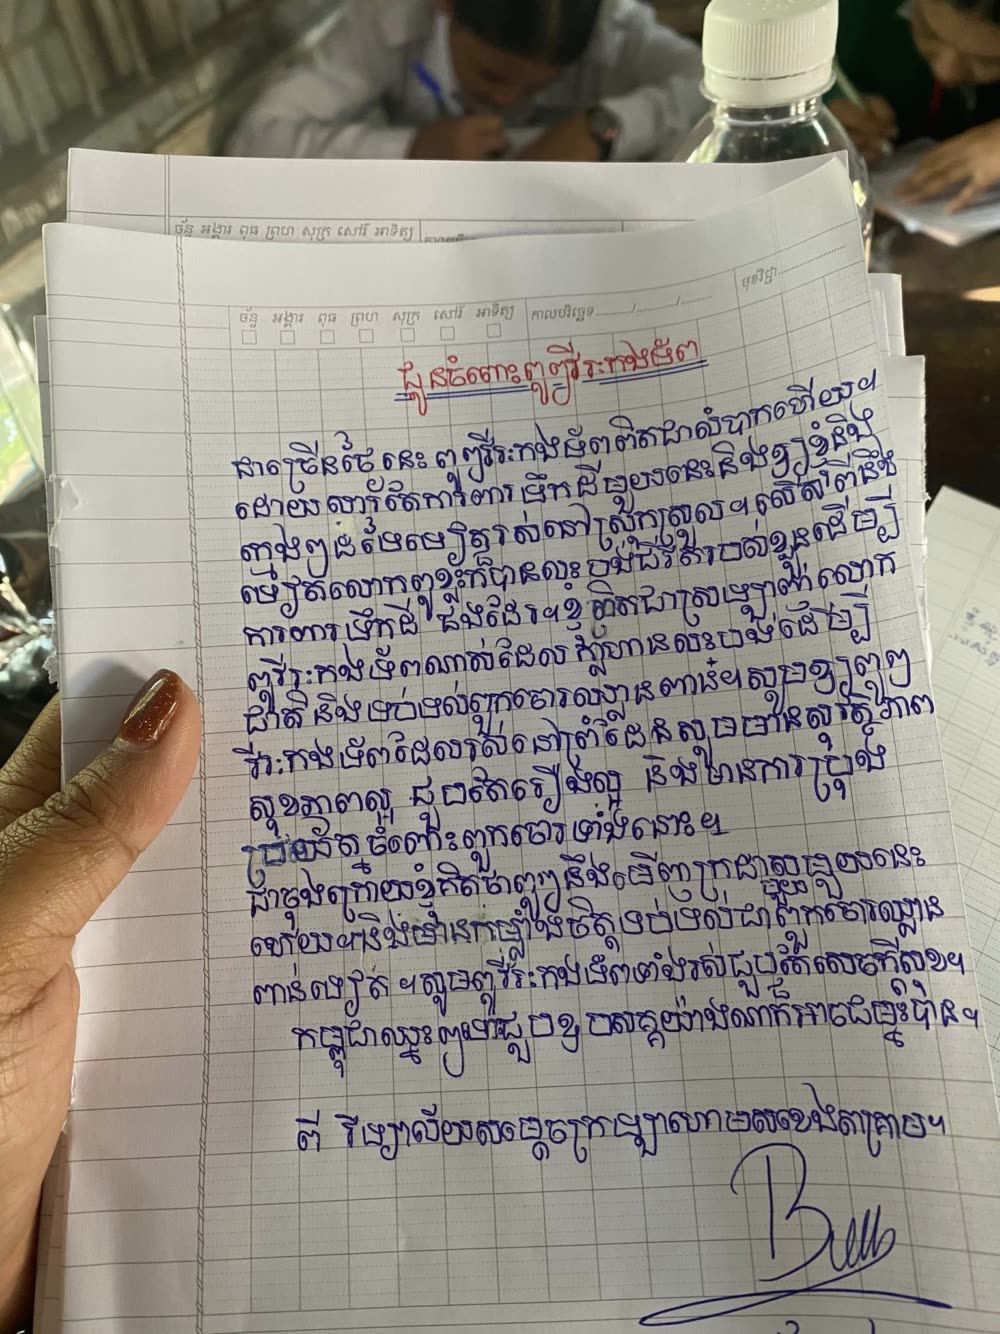 ច័ន្ទ អង្គារ ពុធ ព្រហ សុក្រ សៅរ៍ អាទិត្យ
ច័ន្ទ អង្គារ ពុធ ព្រហ សុក្រ សៅរ៍ អាទិត្យ កាលបរិច្ឆេទ............/............/............ មុខវិជ្ជា
ជូនចំពោះពូៗវីរៈកងទ័ព
ជាច្រើនថ្ងៃនេះ ពូៗវីរៈកងទ័ពពិតជាលំបាកហើយ។
ដោយសារតែការពារទឹកដីមួយនេះនិងឲ្យខ្ញុំនិង
ក្មេងៗដទៃទៀតរស់នៅស្រុកស្រួល។ លើសពីនឹង
ទៀតលោកពូខ្លះក៏បានលះបង់ជីវិតរបស់ខ្លួនដើម្បី
ការពារទឹកដី ផងដែរ។ ខ្ញុំពិតជាស្រឡាញ់លោក
ពូវីរៈកងទ័ពណាស់ដែលក្លាហានលះបង់ដើម្បី
ជាតិ និងទប់ទល់ពួកចោរឈ្លានពាន។ សូមឲ្យពូៗ
វីរៈកងទ័ពដែលរស់នៅព្រំដែនសូមមានសុវត្ថិភាព
សុខភាពល្អ ជួបតែរឿងល្អ និងមានការប្រុង
ប្រយ័ត្នចំពោះពួកចោរទាំងនោះ។
ជាចុងក្រោយខ្ញុំគិតថាពូៗនឹងឃើញក្រដាសមួយនេះ
ហើយនិងមានកម្លាំងចិត្តទប់ទល់ជាមួយពួកចោរឈ្លាន
ពានទៀត ។ សូមពូវីរៈកងទ័ពទាំងរស់ជួបតែសេចក្តីសុខ។
កម្ពុជាឈ្នះ ទោះជួបឧបសគ្គយ៉ាងណាក៏អាចជម្នះបាន។
ពី វិទ្យាល័យសម្តេចក្រឡាហោមសខេងតាគ្រាម។